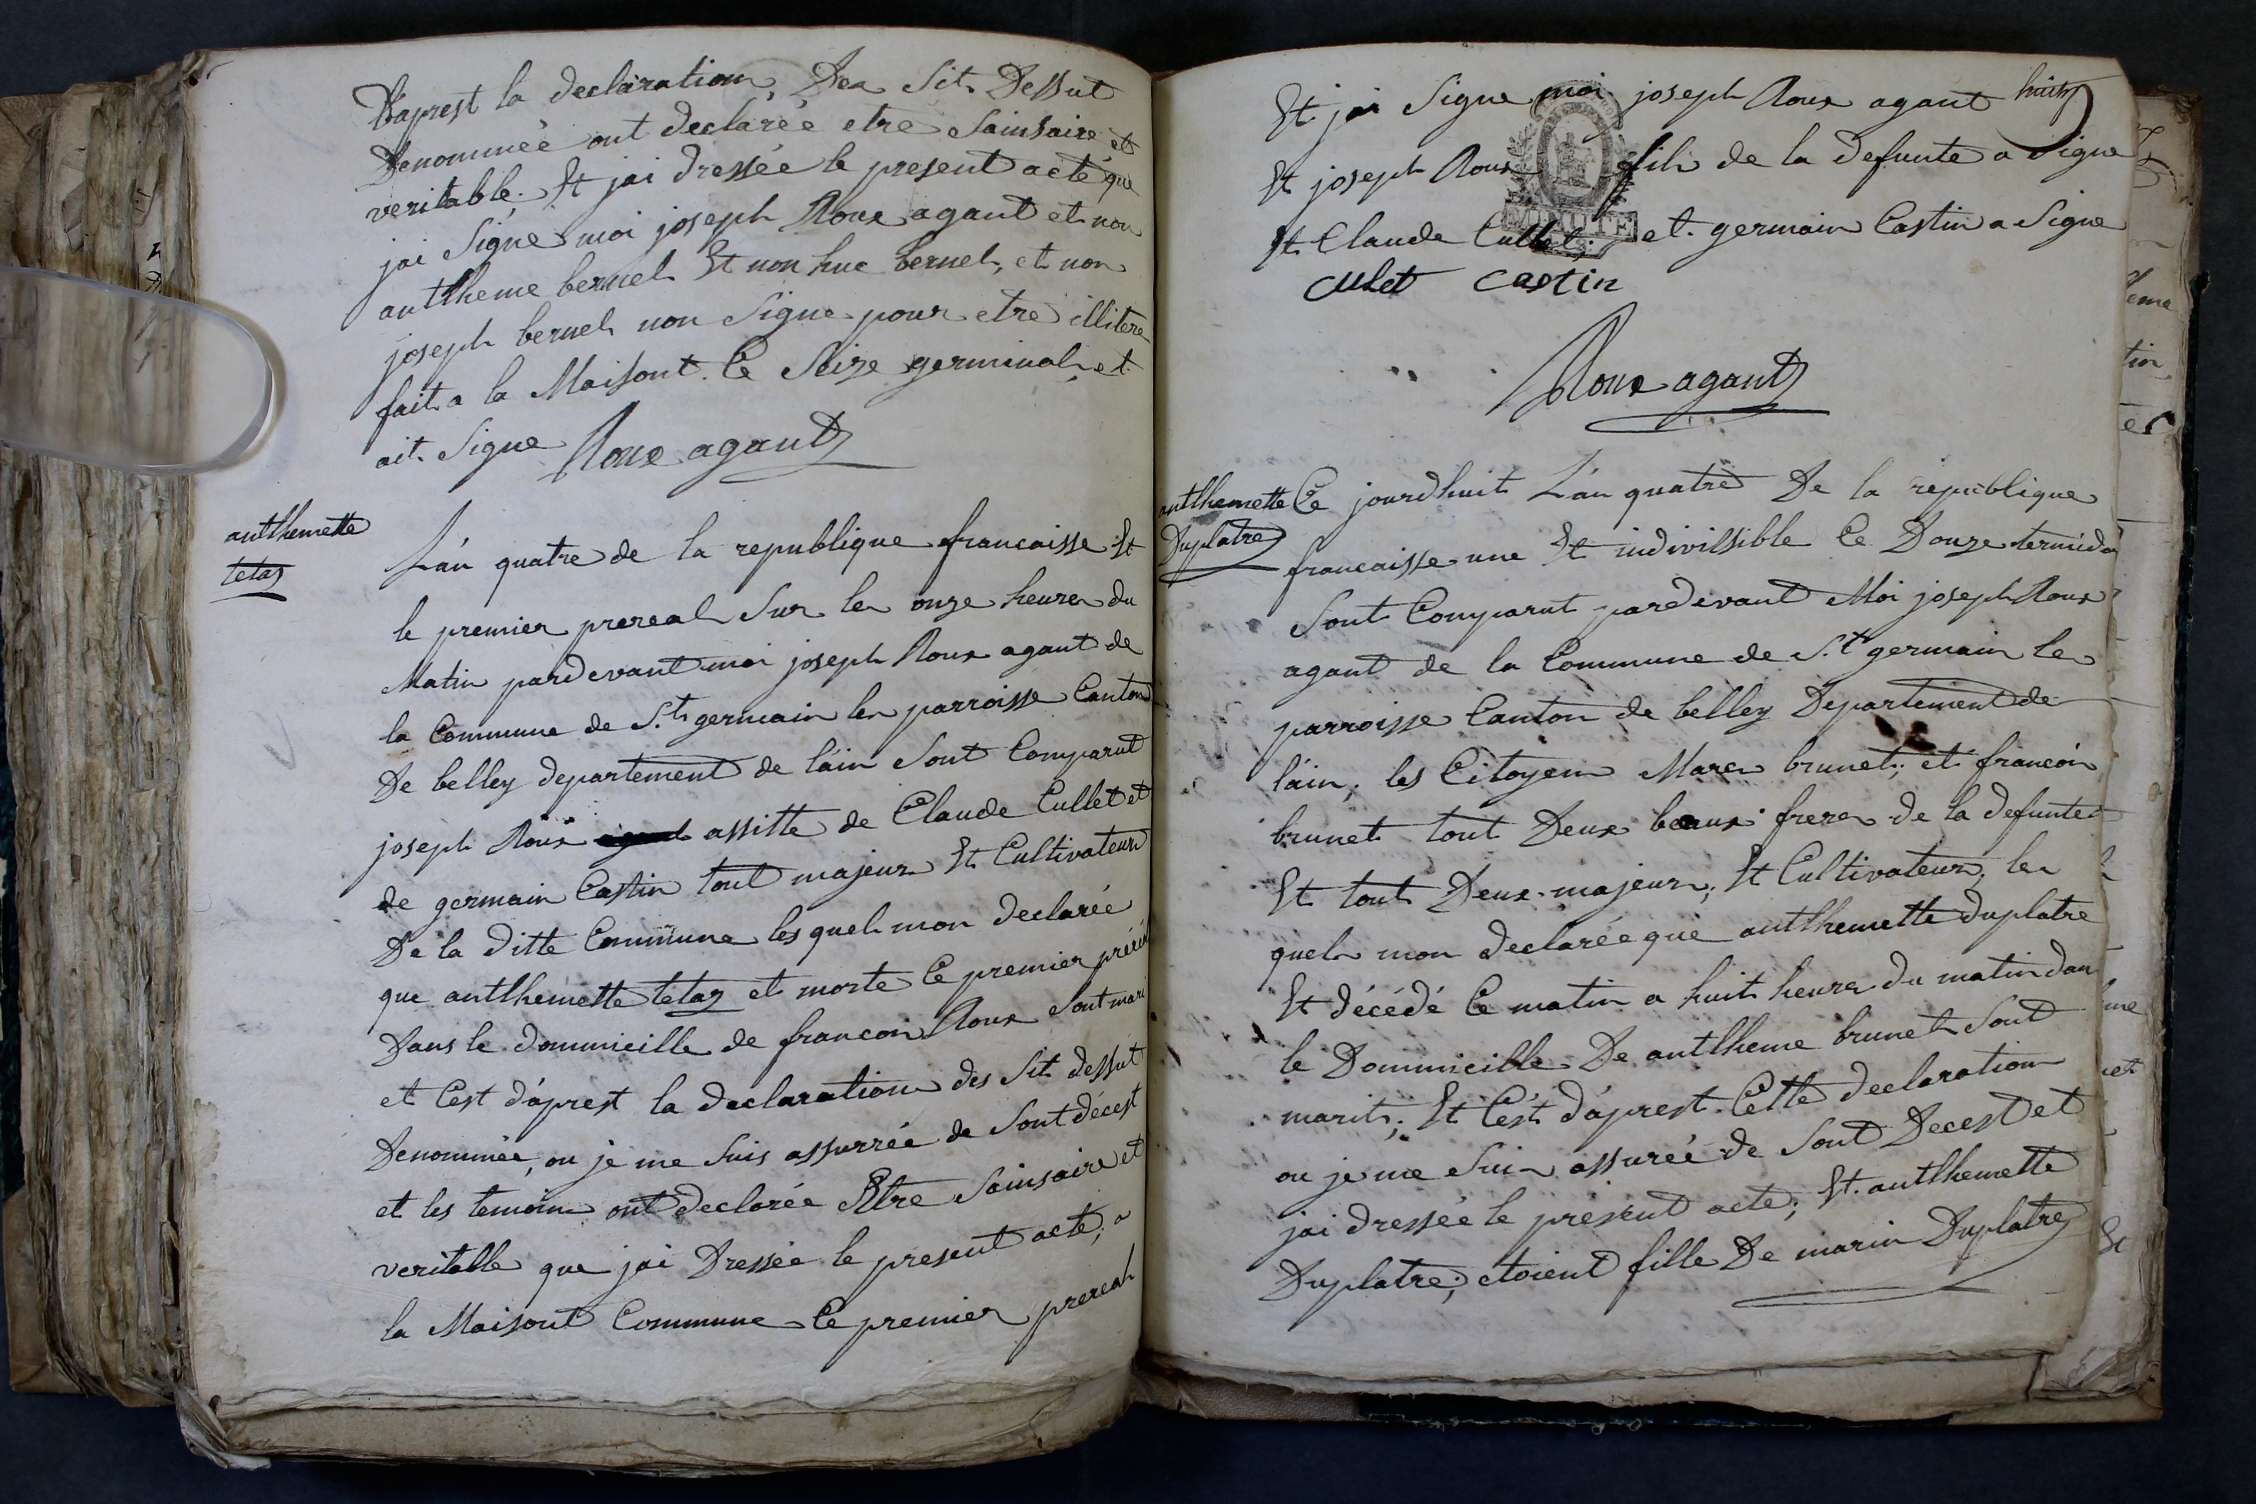 D'aprest la declaration, Des Sit Dessut
Denommée ont declarée etre Sainsaire et
veritable. Et jai dressée le present acte que
jai Signé moi joseph Roux agant et non
antlheme bernel Et non huc bernel, et non
joseph bernel non Signe pour etre illitere
fait a la Maisont Ce Seize germinal et
ait Signe Roux agant
antlhemette
tetaz
L'an quatre de la republique francaisse Et
le premier prereal Sur les onze heures du
Matin pardevant moi joseph Roux agant de
la Commune de S.t germain les parroisse Canton
De belley departement de l'ain Sont Comparut
joseph Roux assitte de Claude Cullet et
de germain Castin tout majeur Et Cultivateur
De la ditte Commune lesquels mon declarée
que antlhemette tetaz et morte Ce premier
Dans le dommicille de francois Roux Sont mari
et C'est d'aprest la declaration des Sit dessut
Denommée, ou je me Suis assurrée de Sont décest
et les temoins ont declarée Etre Sainsaire et
veritable que jai Dressée le present acte, a
la Maisont Commune Ce premier prereal
huit
Et jai Signe moi joseph Roux agant
Et joseph Roux fils de la defunte a Signe
Et Claude Cullet; et germain Castin a Signe
MINUTE
culet castin
Roux agant
antlhemette
Duplatre
Ce jourdhuit L'an quatre De la republique
francaisse une Et indivissible Ce Douze termidor
Sont Comparut pardevant Moi joseph Roux
agant de la Commune de S.t germain les
parroisse Canton de belley Departement de
l'ain, les Citoyens Marcs brunet; et francois
brunet tout Deux beaux freres de la defunte
Et tout Deux majeurs, Et Cultivateurs, les
quels mon declarée que antlhemette Duplatre
Et décédé Ce matin a huit heures du matin dan
le Dommicille De antlheme brunet Sont
marit; Et C'est d'aprest Cette declaration
ou je me Suis assurée de Sont Decest et
jai dressée le present acte; Et antlhemette
Duplatre; etoient fille De marin Duplatre